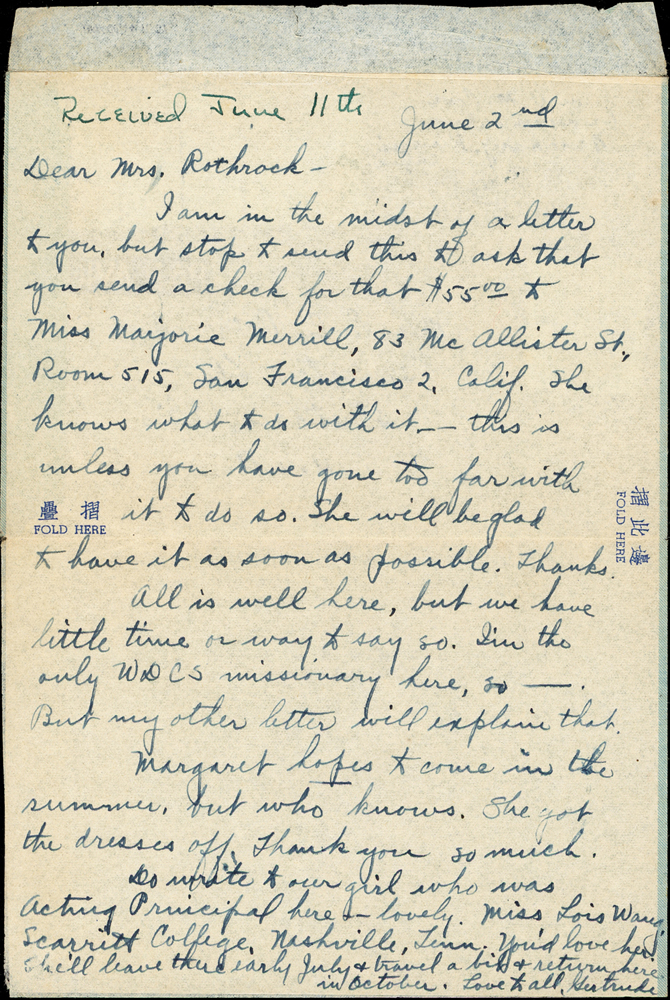 Received June 11th
June 2nd
Dear Mrs. Rothrock –
I am in the midst of a letter
to you, but stop to send this to ask that
you send a check for that $55.00 to
Miss Marjorie Merrill, 83 McAllister St.,
Room 515, San Francisco 2, Calif. She
knows what to do with it — this is
unless you have gone too far with
疊 摺
FOLD HERE
it to do so. She will be glad
摺此邊
FOLD HERE
to have it as soon as possible. Thanks.
All is well here, but we have
little time or way to say so. I'm the
only WDCS missionary here, so —.
But my other letter will explain that.
Margaret hopes to come in the
summer, but who knows. She got
the dresses off. Thank you so much.
Do write to our girl who was
Acting Principal here – lovely. Miss Lois Wang,
Scarritt College, Nashville, Tenn. You'd love her.
She'll leave there early July & travel a bit & return here
in October. Love to all, Gertrude